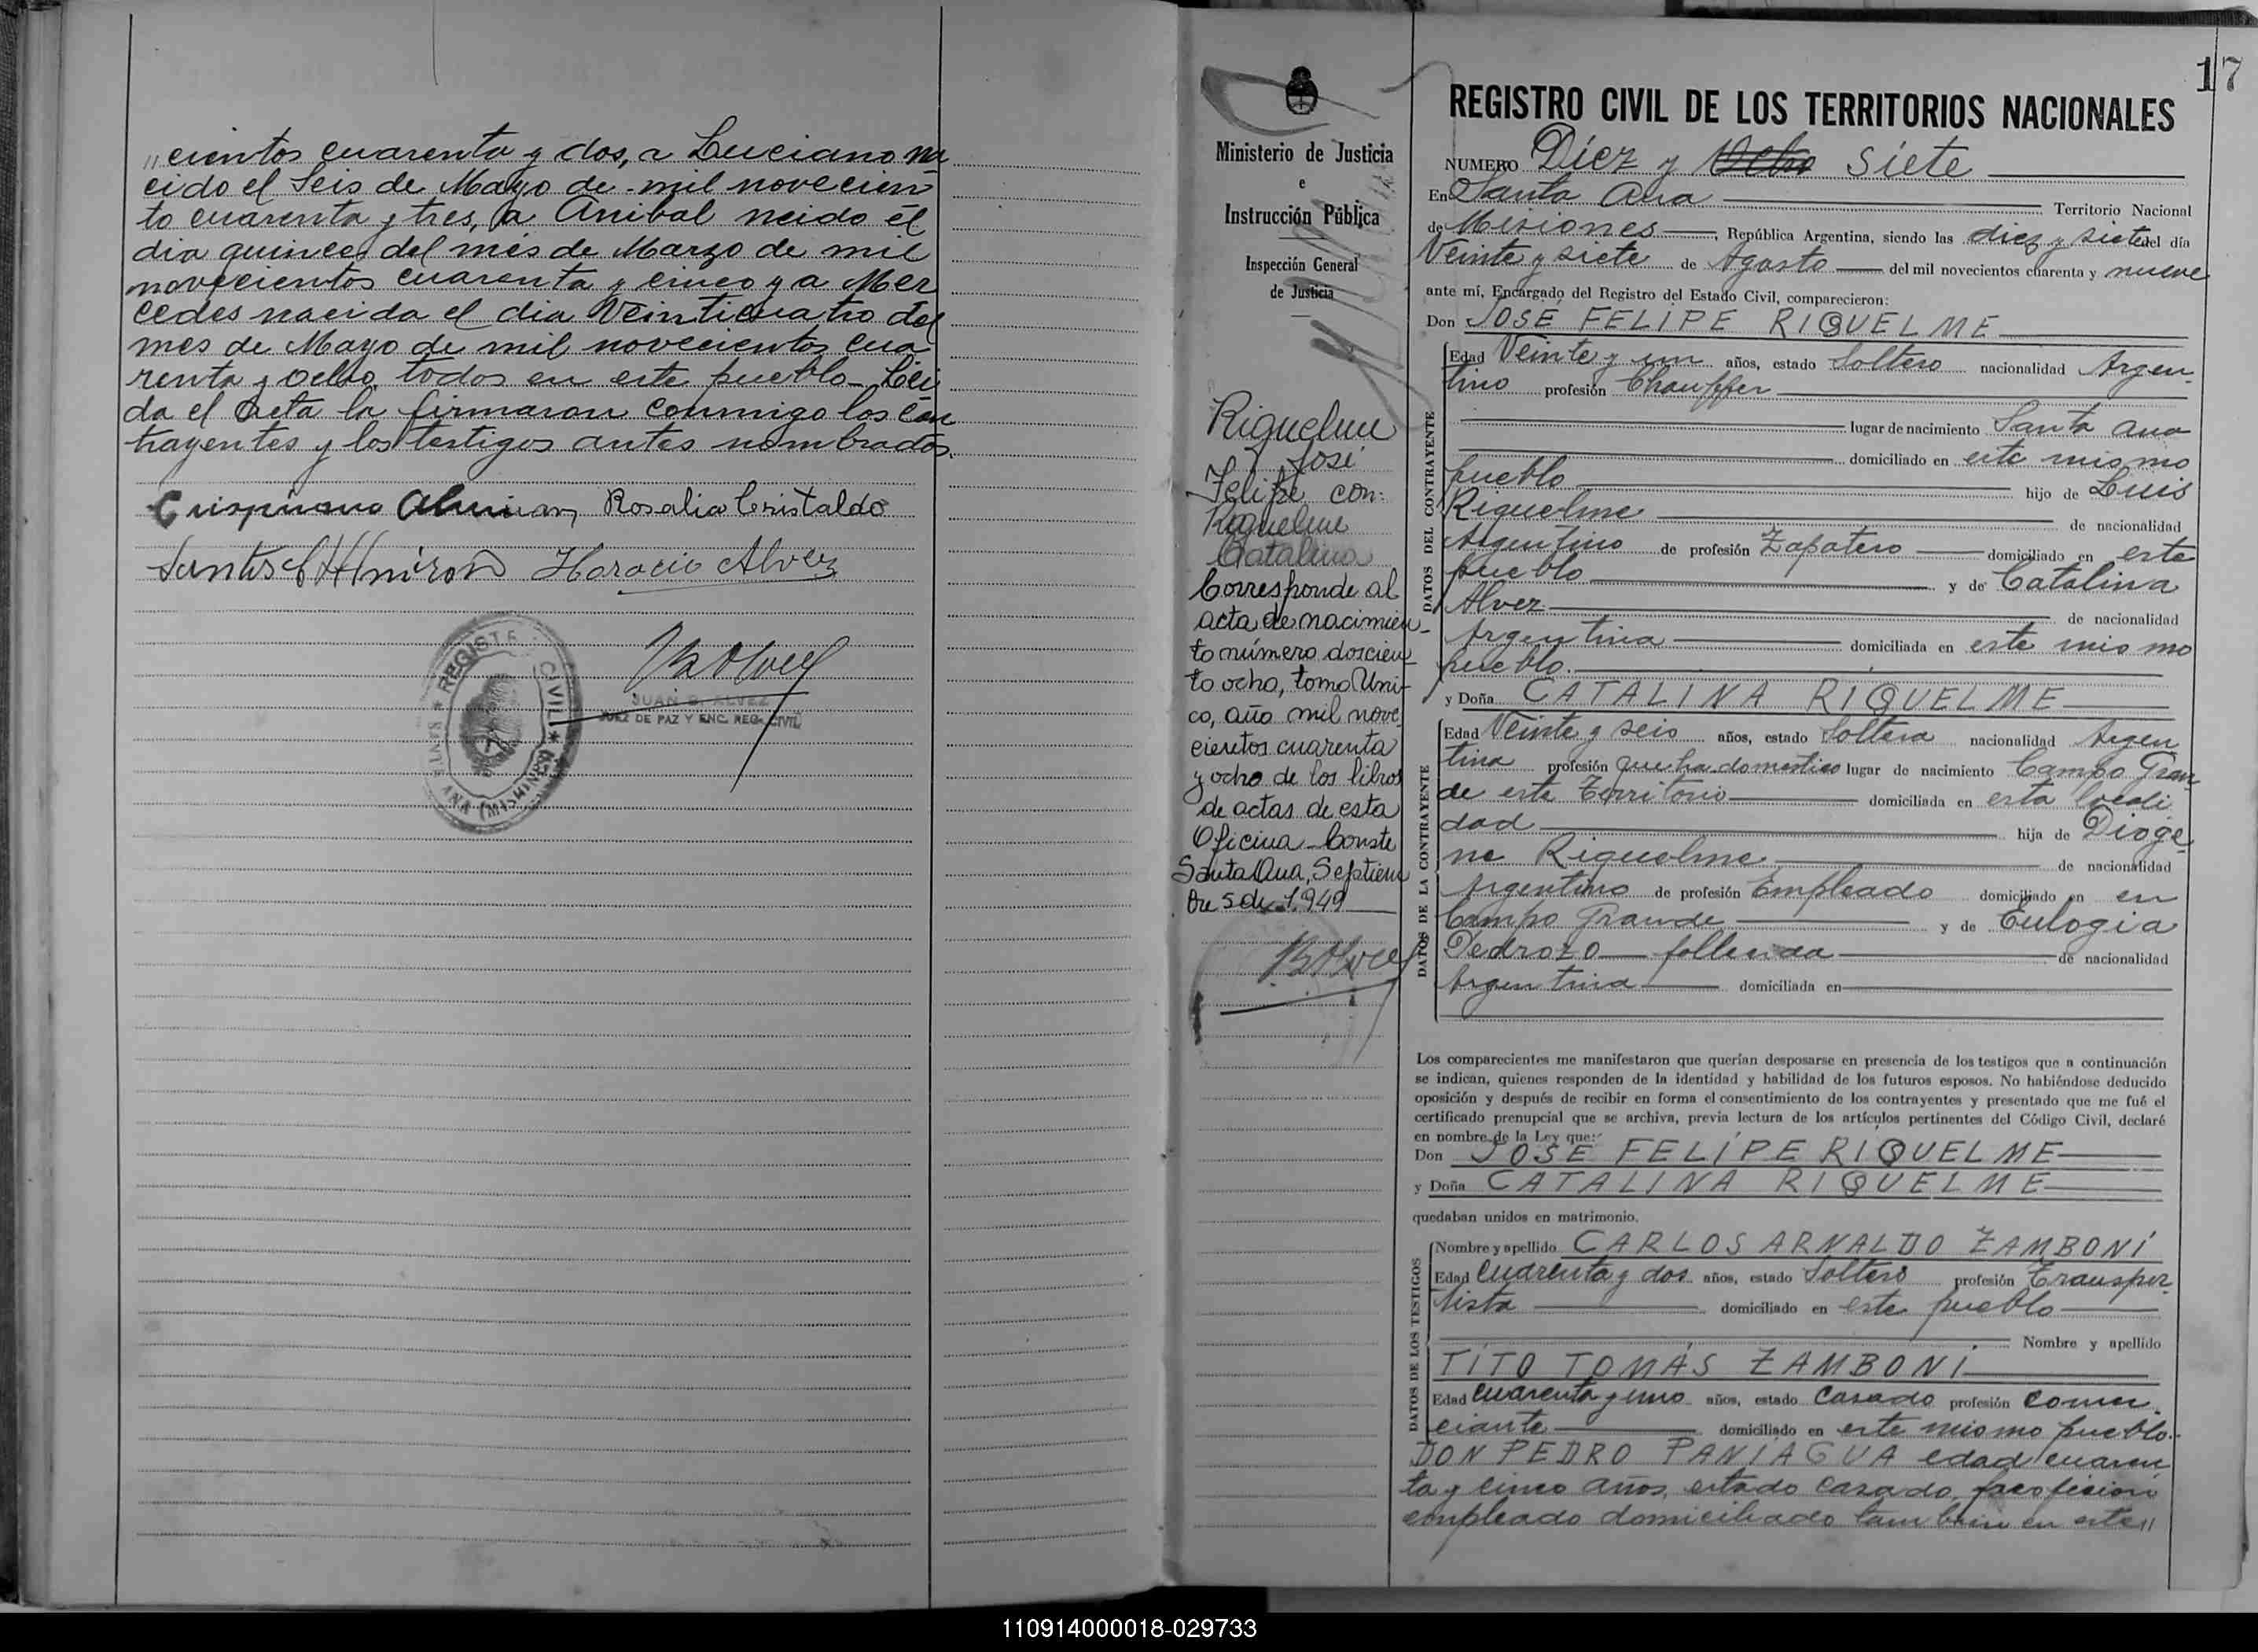 „cientos cuarenta y dos, a Luciano na
cido el Seis de Mayo de mil novecien
to cuarenta y tres, a Anibal ncido el
dia quince del mes de Marzo de mil
novecientos cuarenta y cinco y a Mer
cedes nacida el dia Veinticuatro del
mes de Mayo de mil novecientos cua
renta y ocho todos en este pueblo- Lei
da el acta la firmaron conmigo los con
trayentes y los testigos antes nombrados.
Crispiniano Rosalia Cristaldo
Horacio Alvez
REGISTRO CIVIL * SANTA ANA (MISIONES) *
JUAN B. ALVEZ
JUEZ DE PAZ Y ENC. REG. CIVIL
17
Ministerio de Justicia
e
Instrucción Pública
Inspección General
de Justicia
Riquelme
José
Felipe con
Riquelme
Catalina
Corresponde al
acta de nacimien-
to número doscien-
to ocho, tomo Uni-
co, año mil nove-
cientos cuarenta
y ocho de los libros
de actas de esta
Oficina - Conste
Santa Ana, Septiem
bre 5 de 1.949
REGISTRO CIVIL DE LOS TERRITORIOS NACIONALES
NUMERO Diez y Ocho Siete
En Santa Ana Territorio Nacional
de Misiones, República Argentina, siendo las diez y siete del día
Veinte y siete de Agosto del mil novecientos cuarenta y nueve
ante mí, Encargado del Registro del Estado Civil, comparecieron:
Don JOSE FELIPE RIQUELME
DATOS DEL CONTRAYENTE
Edad Veinte y un años, estado Soltero nacionalidad Argen-
tino profesión Chauffer
lugar de nacimiento Santa Ana
domiciliado en este mismo
pueblo hijo de Luis
Riquelme de nacionalidad
Argentino de profesión Zapatero domiciliado en este
pueblo y de Catalina
Alvez de nacionalidad
Argentina domiciliada en este mismo
pueblo.
y Doña CATALINA RIQUELME
DATOS DE LA CONTRAYENTE
Edad Veinte y seis años, estado Soltera nacionalidad Argen
tina profesión domestico lugar de nacimiento Campo Gran-
de este Territorio domiciliada en esta locali
dad hija de Dioge-
ne Riquelme de nacionalidad
Argentino de profesión Empleado domiciliado en en
Campo Grande y de Eulogia
Pedrozo fallecida de nacionalidad
Argentina domiciliada en
Los comparecientes me manifestaron que querían desposarse en presencia de los testigos que a continuación
se indican, quienes responden de la identidad y habilidad de los futuros esposos. No habiéndose deducido
oposición y después de recibir en forma el consentimiento de los contrayentes y presentado que me fué el
certificado prenupcial que se archiva, previa lectura de los artículos pertinentes del Código Civil, declaré
en nombre de la Ley que:
Don JOSE FELIPE RIQUELME
y Doña CATALINA RIQUELME
quedaban unidos en matrimonio.
DATOS DE LOS TESTIGOS
Nombre y apellido CARLOS ARNALDO ZAMBONI
Edad Cuarenta y dos años, estado Soltero profesión Transpor-
tista domiciliado en este pueblo
Nombre y apellido
TITO TOMÁS ZAMBONI
Edad Cuarenta y uno años, estado Casado profesión Comer-
ciante domiciliado en este mismo pueblo.-
DON PEDRO PANIAGUA edad cuaren
ta y cinco años, estado casado, profesion
empleado domiciliado tambien en este„
110914000018-029733